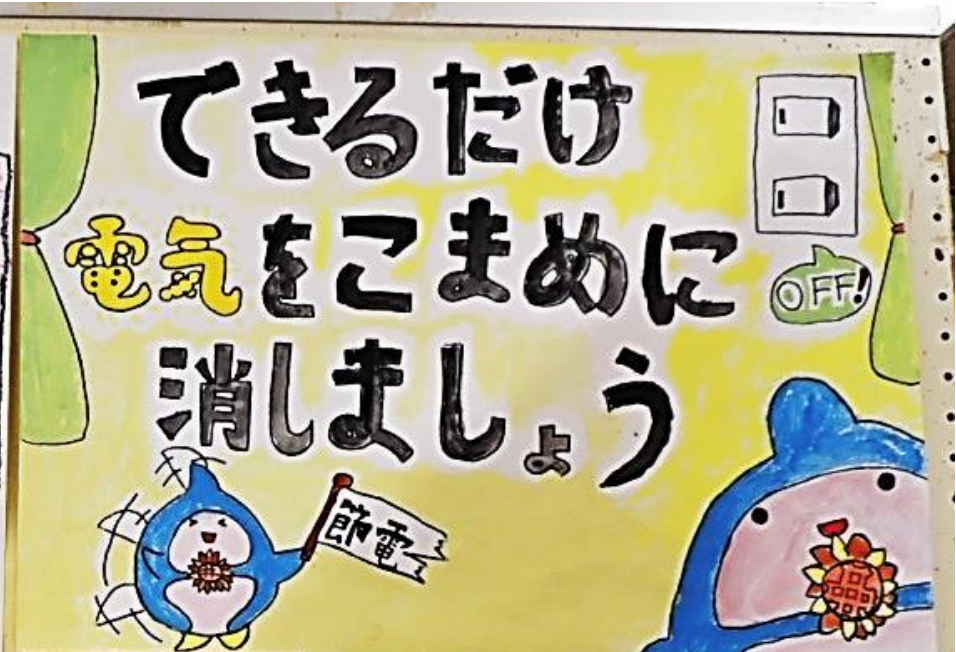 できるだけ
電気をこまめに
消しましょう
OFF!
節電